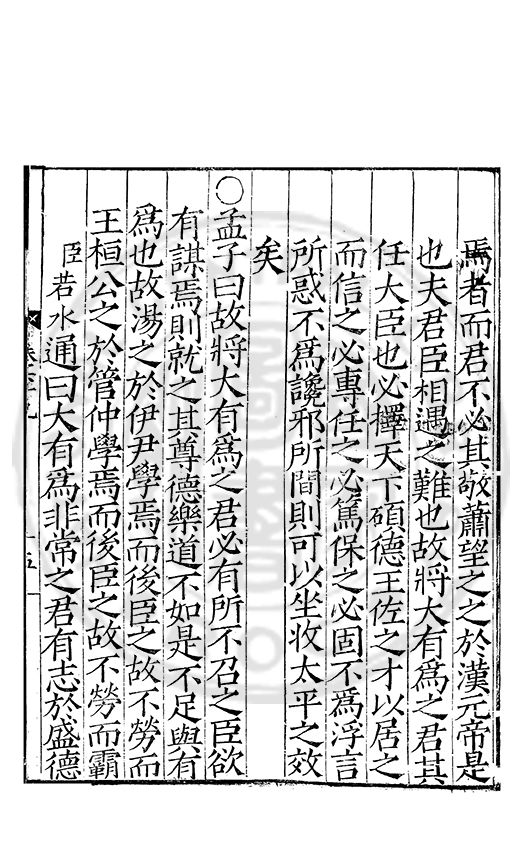 焉者而君不必其敬蕭望之之於漢元帝是
也夫君臣相遇之難也故將大有爲之君其
任大臣也必擇天下碩德王佐之才以居之
而信之必專任之必篤保之必固不爲浮言
所惑不爲讒邪所間則可以坐收太平之效
矣
○孟子曰故將大有爲之君必有所不召之臣欲
有謀焉則就之其尊德樂道不如是不足與有
爲也故湯之於伊尹學焉而後臣之故不勞而
王桓公之於管仲學焉而後臣之故不勞而霸
臣若水通曰大有爲非常之君有志於盛德
十五